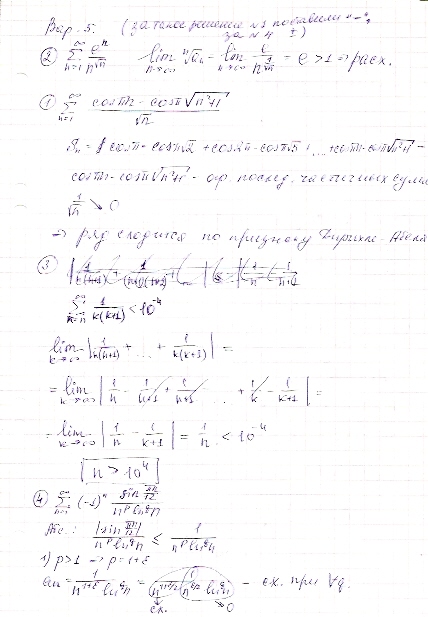 Вар. 5. (за такое решение №1 поставили "–", за №4 ±)
② ∑_{n=1}^{∞} e^n / n^{√n} lim_{n→∞} ⁿ√a_n = lim_{n→∞} e / n^{} = e > 1 ⇒ расх.
① ∑_{n=1}^{∞} (cos πn - cos π√(n²+1)) / √n
S_n = cos π - cos π√2 + cos 2π - cos π√5 + ... + cos πn - cos π√(n²+1) =
cos πn - cos π√(n²+1) - огр. послед. частичных сумм
1/√n ↘ 0
⇒ ряд сходится по признаку Дирихле-Абеля
③
∑_{k=n}^{∞} 1/(k(k+1)) < 10^{-4}
lim_{k→∞} |1/(n(n+1)) + ... + 1/(k(k+1))| =
= lim_{k→∞} |1/n - 1/(n+1) + 1/(n+1) ... + 1/k - 1/(k+1)| =
= lim_{k→∞} |1/n - 1/(k+1)| = 1/n < 10^{-4}
[n > 10^4]
④ ∑_{n=1}^{∞} (-1)^n sin(πn/12) / (n^p ln^q n)
Абс.: |sin(πn/12)| / (n^p ln^q n) ≤ 1 / (n^p ln^q n)
1) p > 1 ⇒ p = 1+ε
a_n = 1 / (n^{1+ε} ln^q n) = 1 / (n^{1+ε/2} n^{ε/2} ln^q n) - сх. при ∀q.
сх. →0